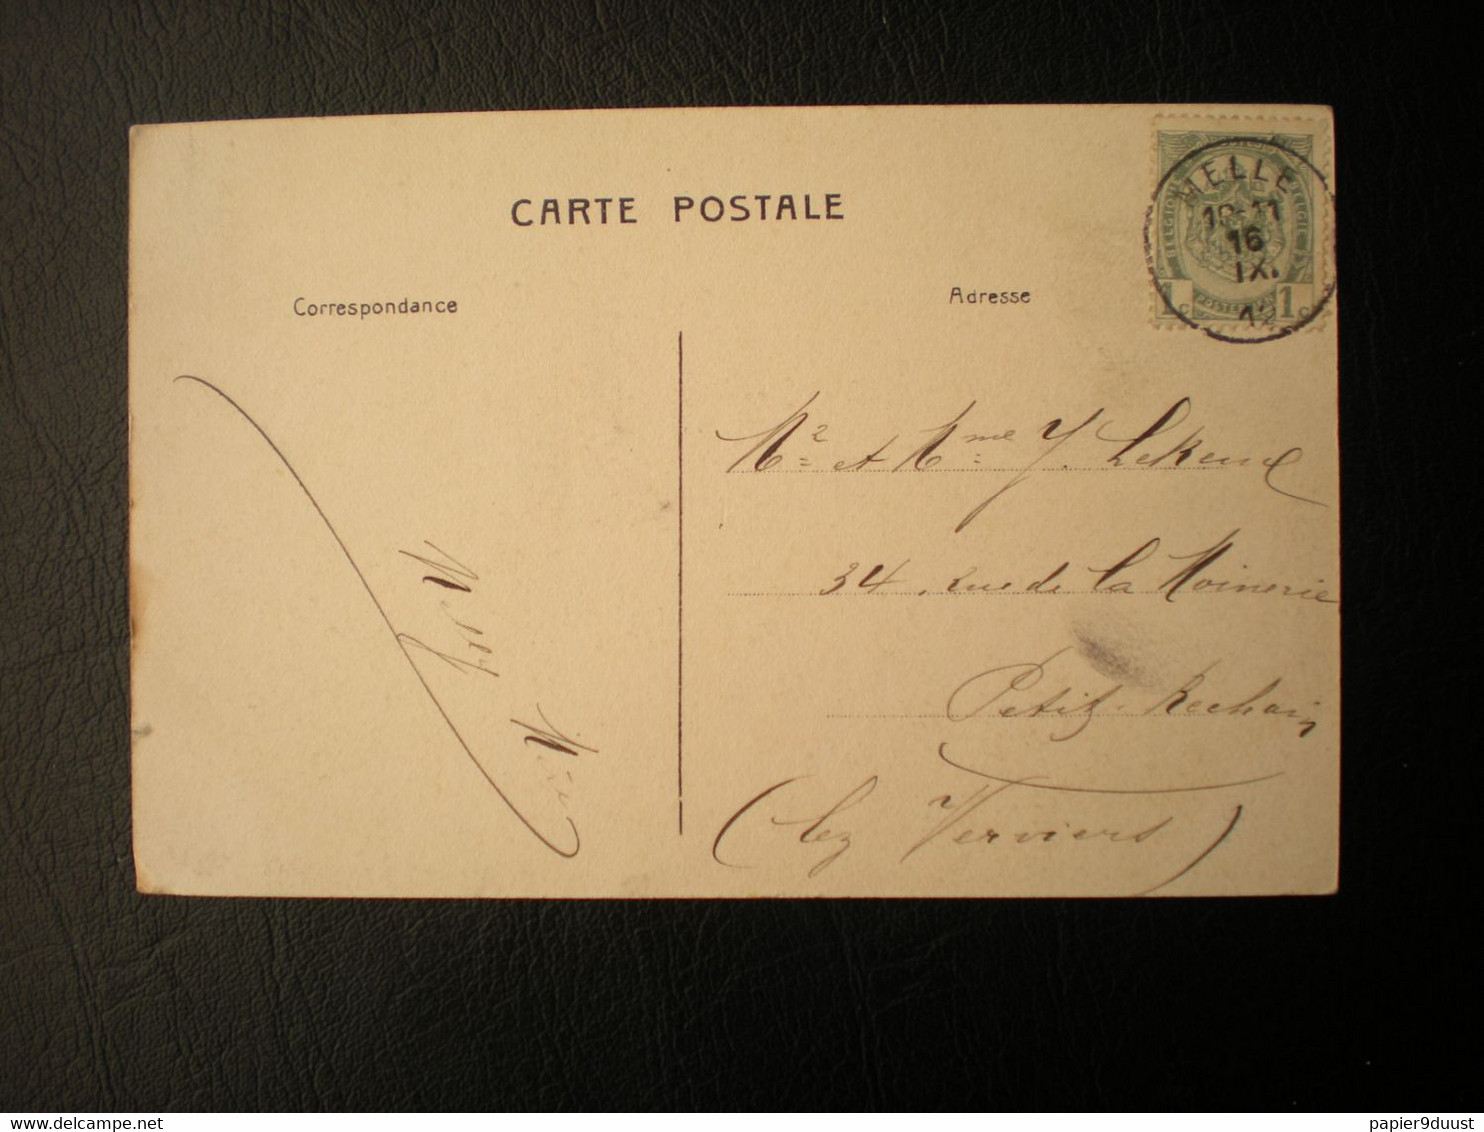 CARTE POSTALE
Correspondance
Adresse
MELLE
10-11
16
IX.
12
BELGIQUE
BELGIE
1 c
Mr et Mme J.
34, Rue de la Moinerie
Petit-Rechain
(lez Verviers)
delcampe.net
papier9duust